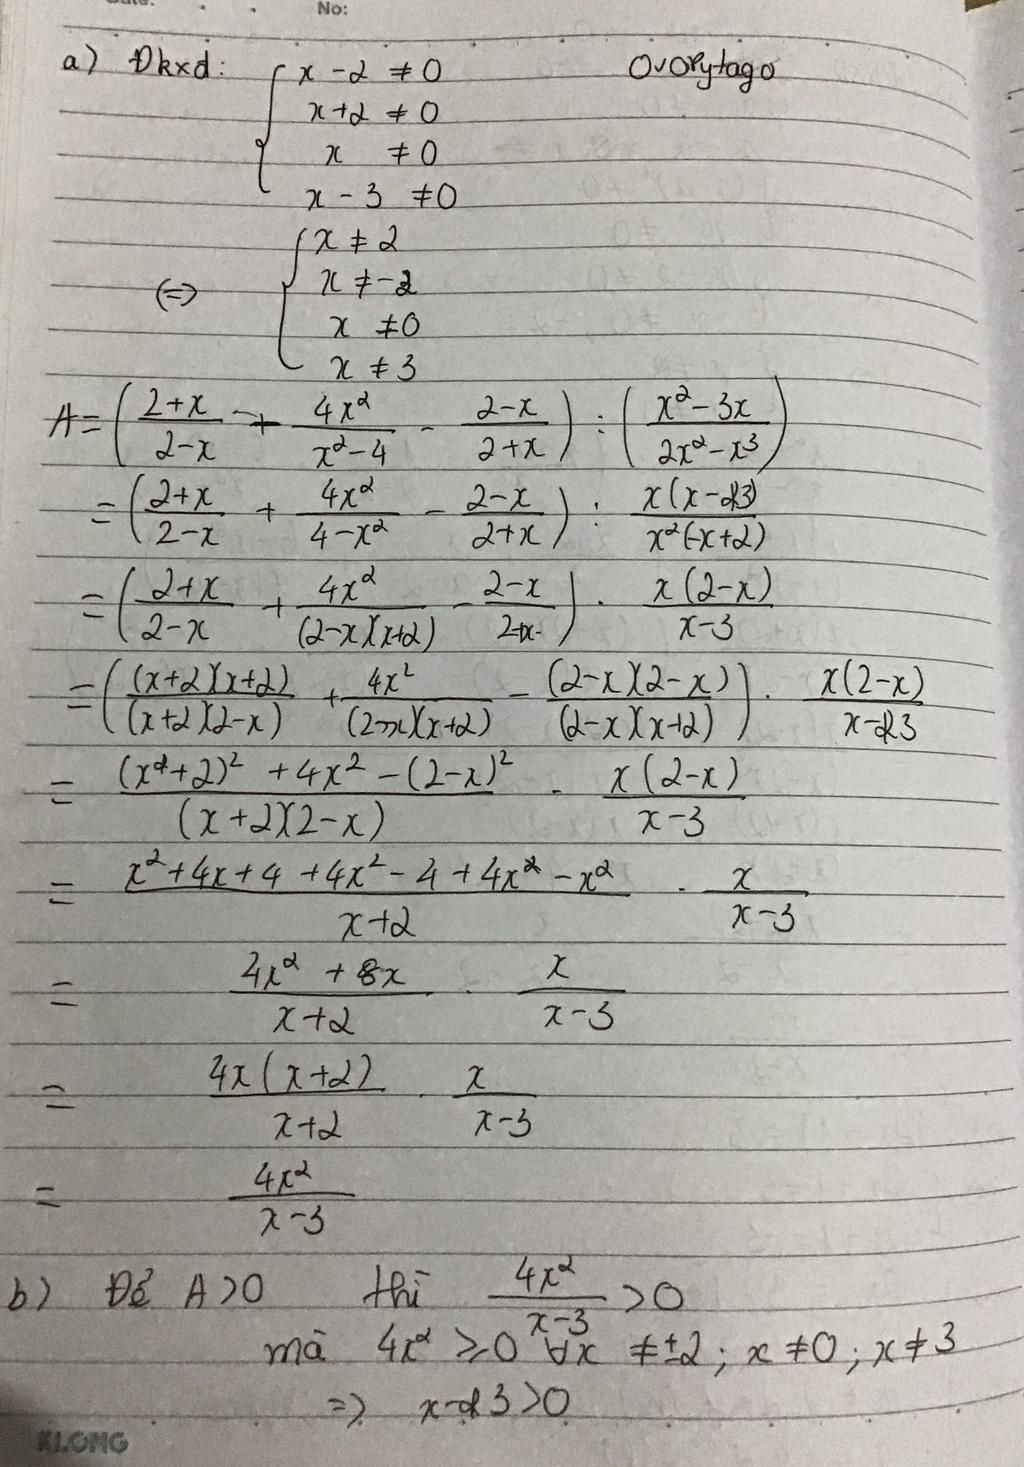 No:
a) Đkxd: { x - 2 ≠ 0 OvOPytago
x + 2 ≠ 0
x ≠ 0
x - 3 ≠ 0
<=> { x ≠ 2
x ≠ -2
x ≠ 0
x ≠ 3
A = ( (2+x)/(2-x) + 4x²/(x²-4) - (2-x)/(2+x) ) : ( (x²-3x)/(2x²-x³) )
= ( (2+x)/(2-x) + 4x²/(4-x²) - (2-x)/(2+x) ) : x(x-3)/x²(-x+2)
= ( (2+x)/(2-x) + 4x²/(2-x)(x+2) - (2-x)/(2+x) ) . x(2-x)/(x-3)
= ( (x+2)(x+2)/(x+2)(2-x) + 4x²/(2-x)(x+2) - (2-x)(2-x)/(2-x)(x+2) ) . x(2-x)/(x-3)
= ((x+2)² + 4x² - (2-x)²)/(x+2)(2-x) . x(2-x)/(x-3)
= (x² + 4x + 4 + 4x² - 4 + 4x² - x²)/(x+2) . x/(x-3)
= (4x² + 8x)/(x+2) . x/(x-3)
= 4x(x+2)/(x+2) . x/(x-3)
= 4x²/(x-3)
b) Để A > 0 thì 4x²/(x-3) > 0
mà 4x² ≥ 0 ∀x ≠ ±2; x ≠ 0; x ≠ 3
=> x - 3 > 0
KLONG